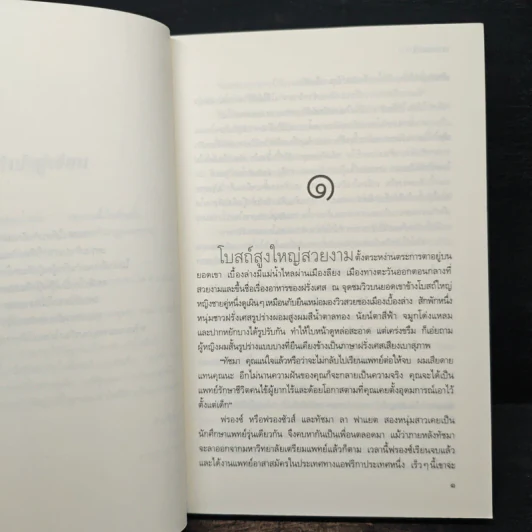 ๑
โบสถ์สูงใหญ่สวยงาม ตั้งตระหง่านตระการตาอยู่บน
ยอดเขา เบื้องล่างมีแม่น้ำไหลผ่านเมืองลียง เมืองทางตะวันออกตอนกลางที่
สวยงามและขึ้นชื่อเรื่องอาหารของฝรั่งเศส ณ จุดชมวิวบนยอดเขาข้างโบสถ์ใหญ่
หญิงชายคู่หนึ่งดูเผินๆ เหมือนกับยืนเหม่อมองวิวสวยของเมืองเบื้องล่าง สักพักหนึ่ง
หนุ่มชาวฝรั่งเศสรูปร่างผอมสูงผมสีน้ำตาลทอง นัยน์ตาสีฟ้า จมูกโด่งแหลม
และปากหยักบางได้รูปรับกัน ทำให้ใบหน้าดูหล่อสะอาด แต่เคร่งขรึม ก็เอ่ยถาม
ผู้หญิงผมสั้นรูปร่างแบบบางที่ยืนเคียงข้างเป็นภาษาฝรั่งเศสเสียงเบาสุภาพ
“ทัชมา คุณแน่ใจแล้วหรือว่าจะไม่กลับไปเรียนแพทย์ต่อให้จบ ผมเสียดาย
แทนคุณนะ อีกไม่นานความฝันของคุณก็จะกลายเป็นความจริง คุณจะได้เป็น
แพทย์รักษาชีวิตคนไข้ผู้ยากไร้และด้อยโอกาสตามที่คุณเคยตั้งอุดมการณ์เอาไว้
ตั้งแต่เด็ก”
ฟรองซ์ หรือฟรองซัวส์ และทัชมา ลา ฟาแยต สองหนุ่มสาวเคยเป็น
นักศึกษาแพทย์รุ่นเดียวกัน จึงคบหากันเป็นเพื่อนตลอดมา แม้ว่าภายหลังทัชมา
จะลาออกจากมหาวิทยาลัยเตรียมแพทย์แล้วก็ตาม เวลานี้ฟรองซ์เรียนจบแล้ว
และได้งานแพทย์อาสาสมัครในประเทศทางแอฟริกาประเทศหนึ่ง เร็วๆ นี้เขาจะ